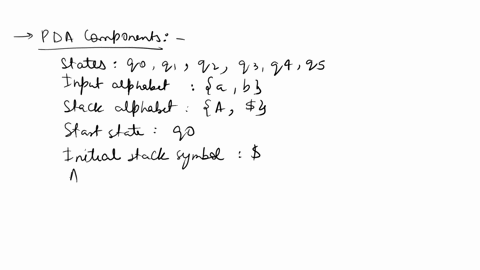 → PDA Components: -
States: q0, q1, q2, q3, q4, q5
Input alphabet: {a, b}
Stack alphabet: {A, $}
Start state: q0
Initial stack symbol: $
A